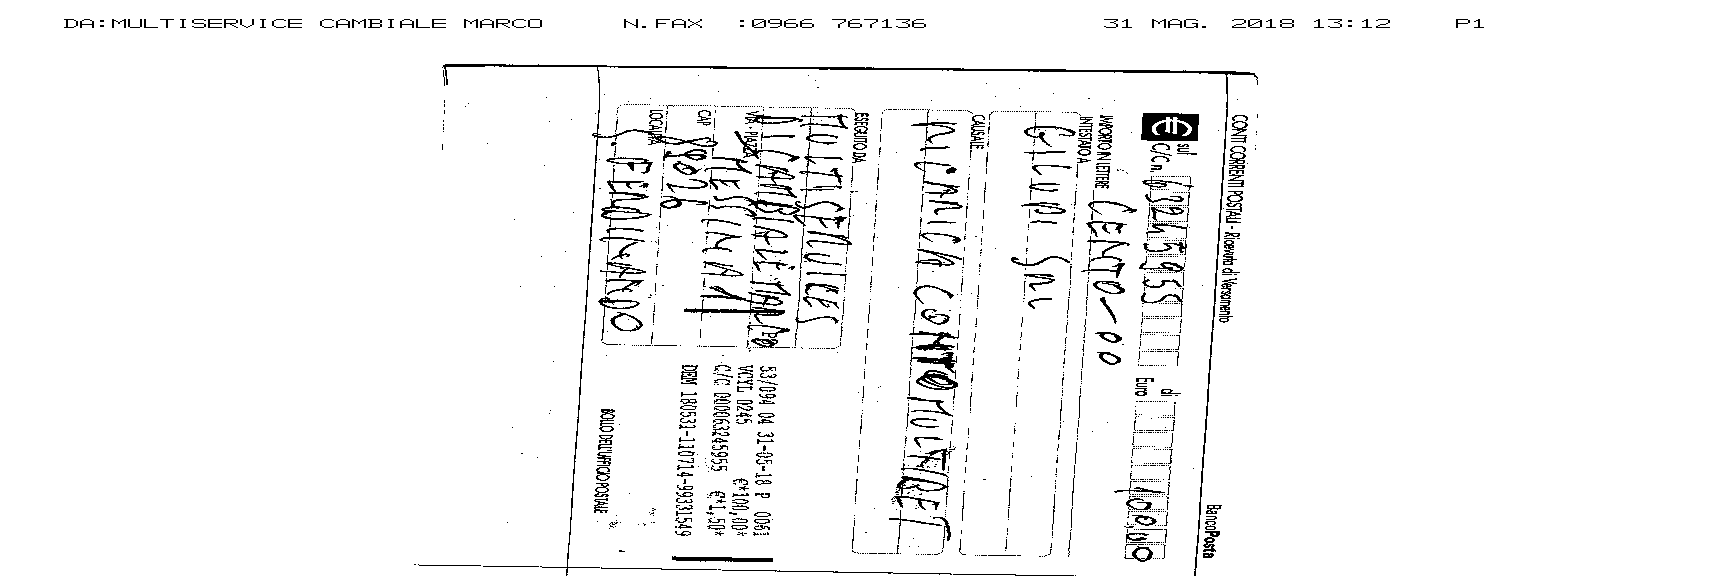 DA:MULTISERVICE CAMBIALE MARCO N.FAX :0966 767136 31 MAG. 2018 13:12 P1
CONTI CORRENTI POSTALI - Ricevuta di Versamento BancoPosta
€ sul C/C n. 63245955 di Euro 100,00
IMPORTO IN LETTERE CENTO-00
INTESTATO A
GILUPI SRL
CAUSALE
RICARICA CONTO MULTIBET
ESEGUITO DA
MULTI SERVICES
DI CAMBIALE MARCO
VIA - PIAZZA MESSINA 1
CAP 89026
LOCALITÀ
S. FERDINANDO
53/094 04 31-05-18 P 0061
VCYL 0245 €*100,00*
C/C 000063245955 €*1,50*
DERM 180531-110714-99331549
BOLLO DELL'UFFICIO POSTALE